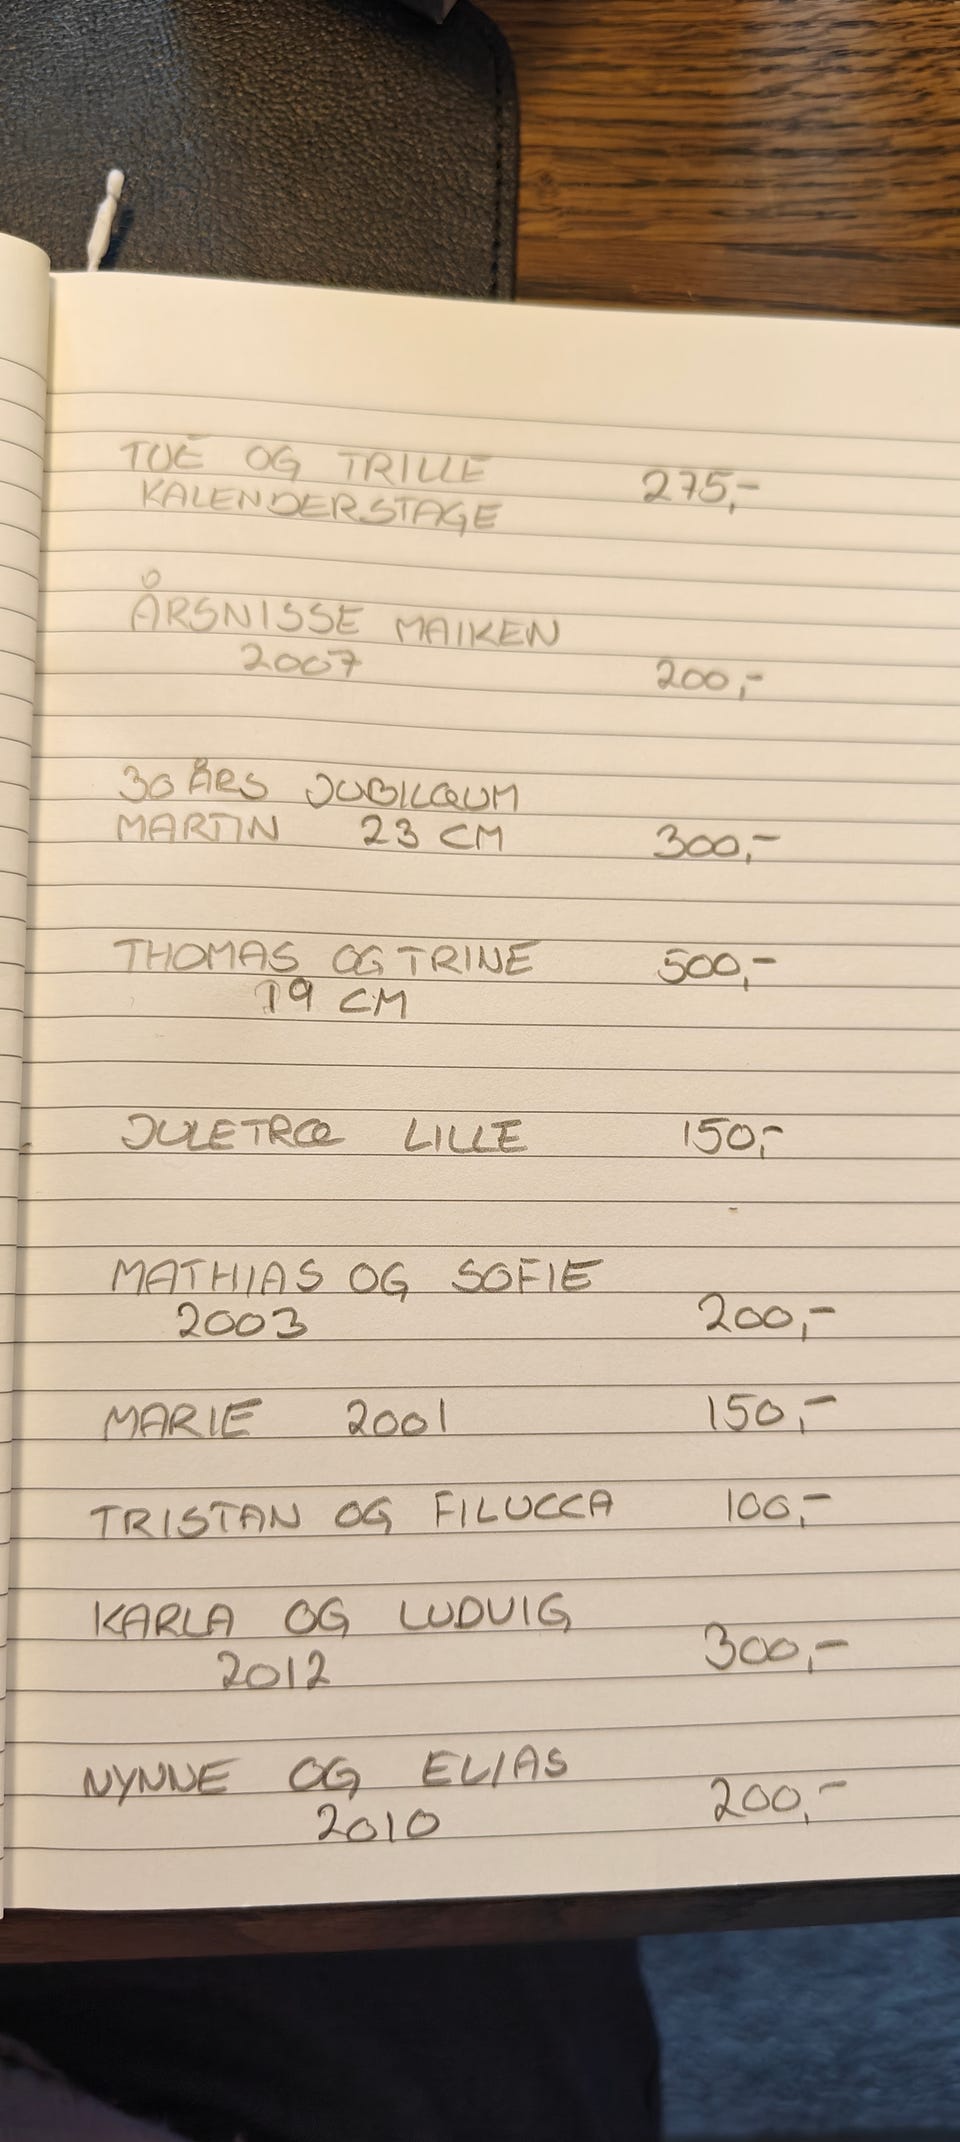 TUE OG TRILLE
KALENDERSTAGE 275,-
ÅRSNISSE MAIKEN
2007 200,-
30 ÅRS JUBILÆUM
MARTIN 23 CM 300,-
THOMAS OG TRINE 500,-
19 CM
JULETRÆ LILLE 150,-
MATHIAS OG SOFIE
2003 200,-
MARIE 2001 150,-
TRISTAN OG FILUCCA 100,-
KARLA OG LUDVIG
2012 300,-
NYNNE OG ELIAS
2010 200,-